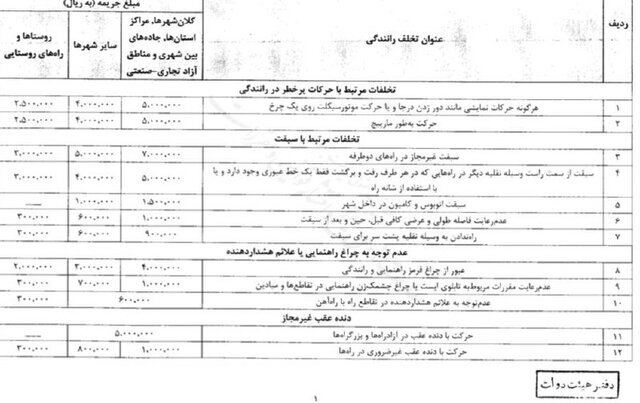 مبلغ جریمه (به ریال)
ردیف
عنوان تخلف رانندگی
کلان‌شهرها، مراکز استان‌ها، جاده‌های بین شهری و مناطق آزاد تجاری-صنعتی
سایر شهرها
روستاها و راه‌های روستایی
تخلفات مرتبط با حرکات پرخطر در رانندگی
۱ هرگونه حرکات نمایشی مانند دور زدن درجا و یا حرکت موتورسیکلت روی یک چرخ ۵.۰۰۰.۰۰۰ ۴.۰۰۰.۰۰۰ ۲.۵۰۰.۰۰۰
۲ حرکت به‌طور مارپیچ ۵.۰۰۰.۰۰۰ ۴.۰۰۰.۰۰۰ ۲.۵۰۰.۰۰۰
تخلفات مرتبط با سبقت
۳ سبقت غیرمجاز در راه‌های دوطرفه ۷.۰۰۰.۰۰۰ ۵.۰۰۰.۰۰۰ ۳.۰۰۰.۰۰۰
۴ سبقت از سمت راست وسیله نقلیه دیگر در راه‌هایی که در هر طرف رفت و برگشت فقط یک خط عبوری وجود دارد و یا ۵.۰۰۰.۰۰۰ ۴.۰۰۰.۰۰۰ ۳.۰۰۰.۰۰۰
با استفاده از شانه راه
۵ سبقت اتوبوس و کامیون در داخل شهر ۱.۵۰۰.۰۰۰ ۱.۰۰۰.۰۰۰ ___
۶ عدم‌رعایت فاصله طولی و عرضی کافی قبل، حین و بعد از سبقت ۱.۰۰۰.۰۰۰ ۶۰۰.۰۰۰ ۳۰۰.۰۰۰
۷ راه‌ندادن به وسیله نقلیه پشت سر برای سبقت ۹۰۰.۰۰۰ ۶۰۰.۰۰۰ ۳۰۰.۰۰۰
عدم توجه به چراغ راهنمایی یا علائم هشداردهنده
۸ عبور از چراغ قرمز راهنمایی و رانندگی ۴.۰۰۰.۰۰۰ ۳.۰۰۰.۰۰۰ ۲.۰۰۰.۰۰۰
۹ عدم‌رعایت مقررات مربوط‌به تابلوی ایست یا چراغ چشمک‌زن راهنمایی در تقاطع‌ها و میادین ۱.۰۰۰.۰۰۰ ۷۰۰.۰۰۰ ۳۰۰.۰۰۰
۱۰ عدم‌توجه به علائم هشداردهنده در تقاطع راه با راه‌آهن ۶۰۰.۰۰۰ ۳۰۰.۰۰۰
دنده عقب غیرمجاز
۱۱ حرکت با دنده عقب در آزادراه‌ها و بزرگراه‌ها ۵.۰۰۰.۰۰۰ ___
۱۲ حرکت با دنده عقب غیرضروری در راه‌ها ۱.۰۰۰.۰۰۰ ۸۰۰.۰۰۰ ۳۰۰.۰۰۰
دفتر هیئت دولت
۱